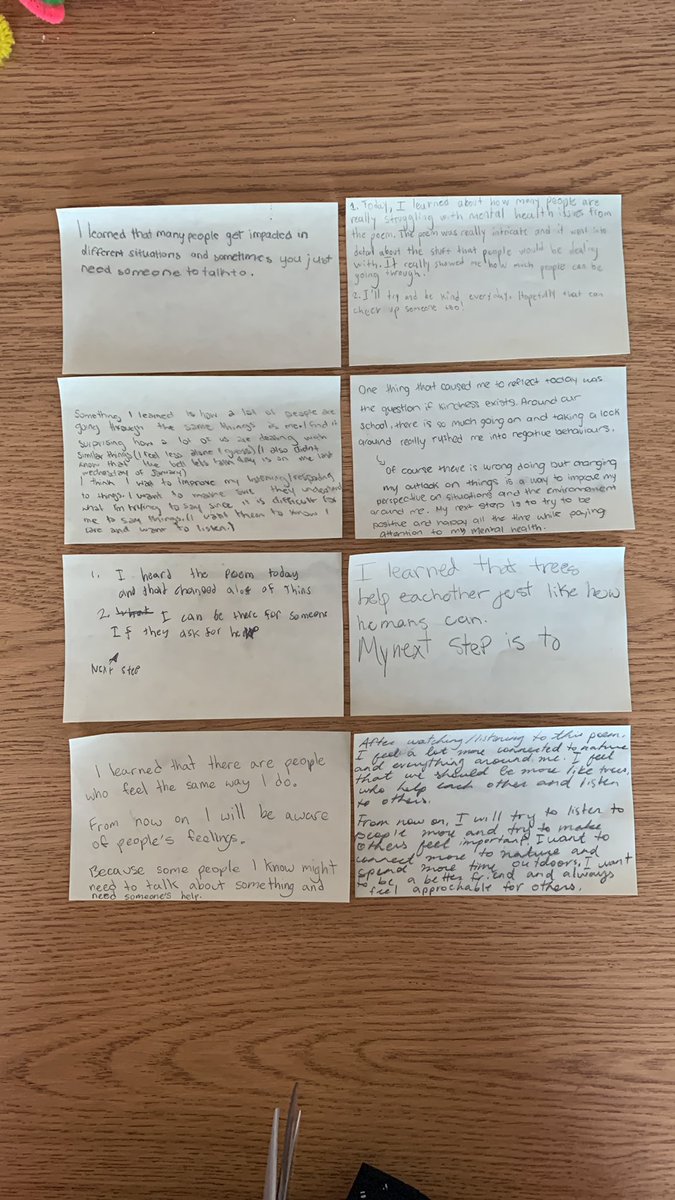 I learned that many people get impacted in
different situations and sometimes you just
need someone to talk to.
1. Today, I learned about how many people are
really struggling with mental health issues from
the poem. The poem was really intricate and it went into
detail about the stuff that people would be dealing
with. It really showed me how much people can be
going through.
2. I'll try and be kind everyday. Hopefully that can
cheer up someone too!
Something I learned is how a lot of people are
going through the same things as me. I find it
surprising how a lot of us are dealing with
similar things (I feel less alone I guess) (I also didn't
know that the bell lets talk day is on the last
wednesday of January)
I think I want to improve my listening/responding
to things. I want to make sure they understand
what I'm trying to say since it is difficult for
me to say things. (I want them to know I
care and want to listen.)
One thing that caused me to reflect today was
the question if kindness exists. Around our
school, there is so much going on and taking a look
around really rushed me into negative behaviours.
Of course there is wrong doing but changing
my outlook on things is a way to improve my
perspective on situations and the environment
around me. My next step is to try to be
positive and happy all the time while paying
attention to my mental health.
1. I heard the poem today
and that changed a lot of thins
2. I can be there for someone
If they ask for help
Next step
I learned that trees
help eachother just like how
humans can.
My next step is to
I learned that there are people
who feel the same way I do.
From now on I will be aware
of people's feelings.
Because some people I know might
need to talk about something and
need someone's help.
After watching/listening to this poem.
I feel a lot more connected to nature
and everything around me. I feel
that we should be more like trees,
who help each other and listen
to others.
From now on, I will try to listen to
people more and try to make
others feel important. I want to
connect more to nature and
spend more time outdoors. I want
to be a better friend and always
feel approchable for others.